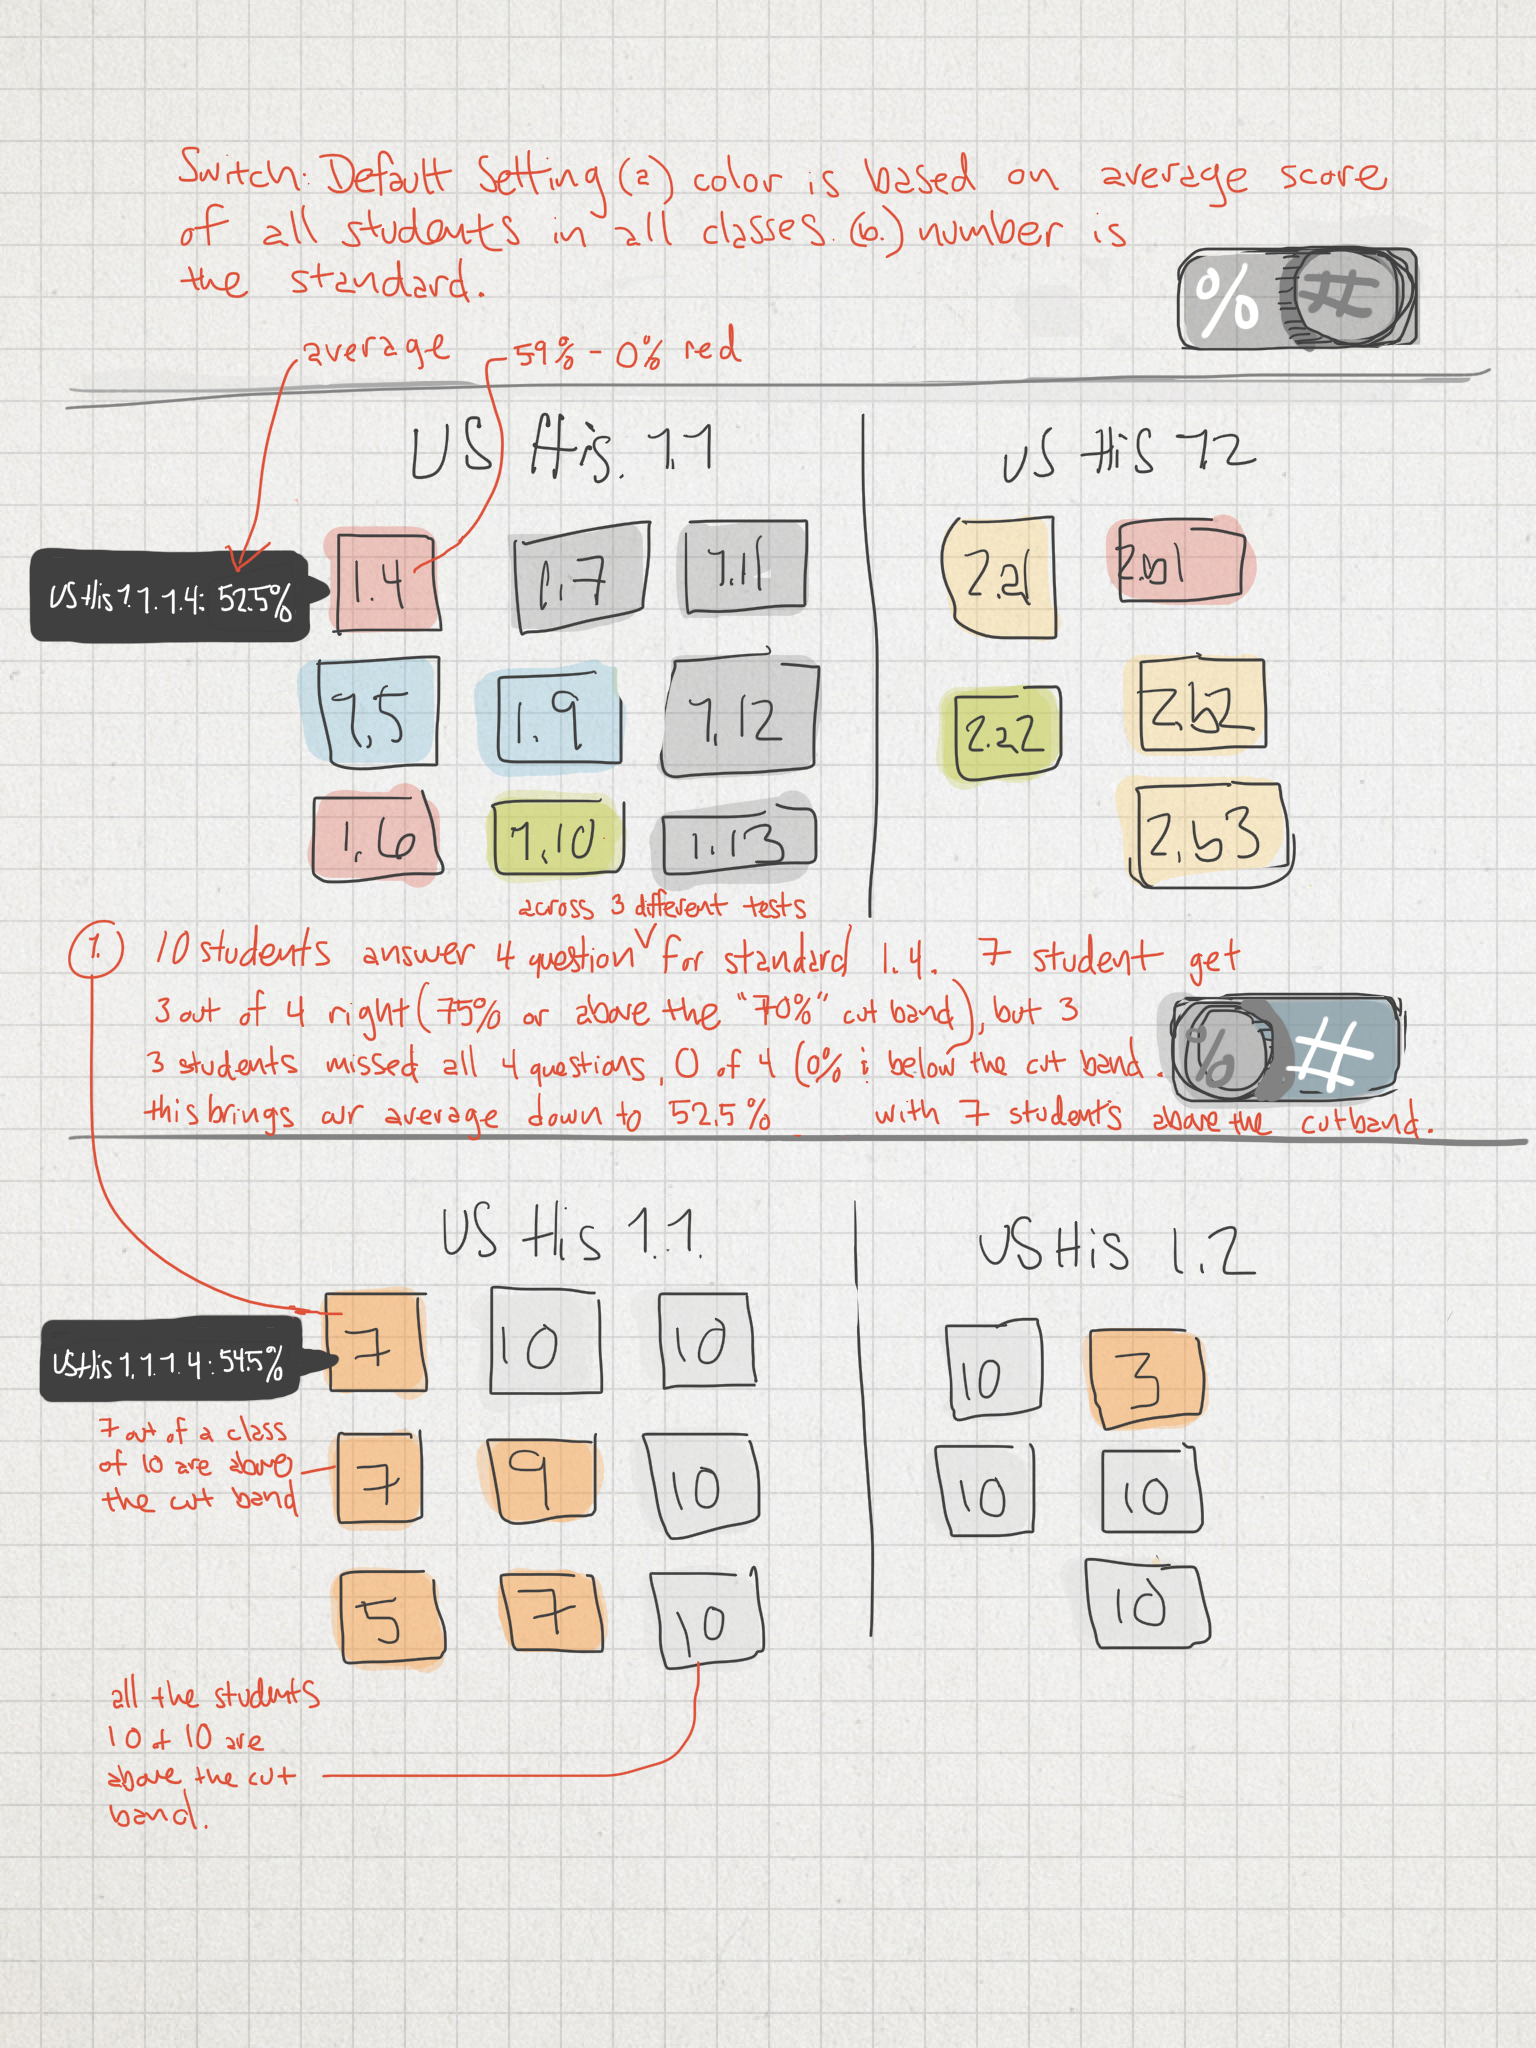 Switch: Default Setting (a) color is based on average score
of all students in all classes. (b.) number is
the standard.
% #
average 59% - 0% red
US His. 1.1 US His 1.2
1.4 1.7 1.11 2.a1 2.b1
US His 1.1.1.4: 52.5%
1.5 1.9 1.12 2.a2 2.b2
1.6 1.10 1.13 2.b3
across 3 different tests
1. 10 students answer 4 question ∨ for standard 1.4. 7 student get
3 out of 4 right (75% or above the "70%" cut band), but 3
3 students missed all 4 questions, 0 of 4 (0% i below the cut band.
% #
this brings our average down to 52.5% with 7 students above the cut band.
US His 1.1. US His 1.2
7 10 10 10 3
US His 1.1.1.4: 54.5%
7 out of a class
of 10 are above
the cut band
7 9 10 10 10
5 7 10 10
all the students
10 of 10 are
above the cut
band.